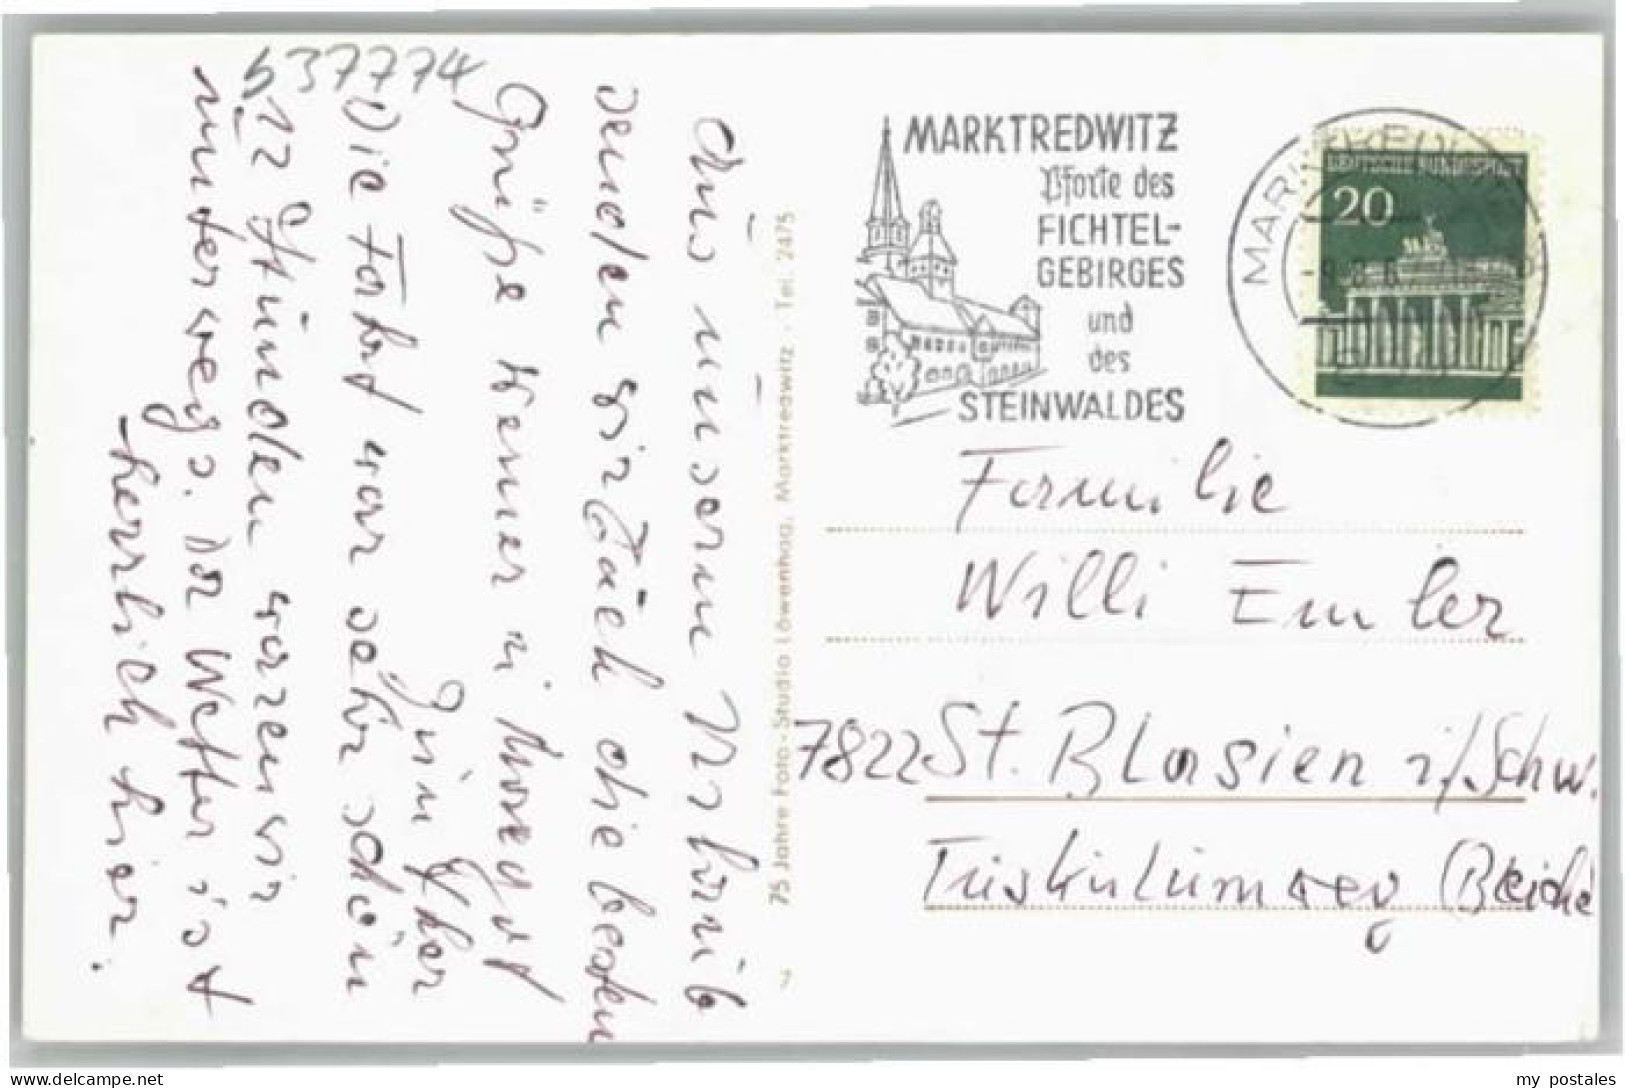 537774
Aus unserm Urlaub
senden wir Euch die besten
Grüße Werner u.
Die Fahrt war sehr schön
12 Stunden waren wir
unterwegs. Das Wetter ist
herrlich hier.
75 Jahre Foto-Studio Löwenhag, Marktredwitz · Tel. 2475
MARKTREDWITZ
Pforte des
FICHTEL-
GEBIRGES
und
des
STEINWALDES
DEUTSCHE BUNDESPOST
20
Familie
Willi Emler
7822 St. Blasien i/Schw.
Tuskulumweg (Bleiche
my postales